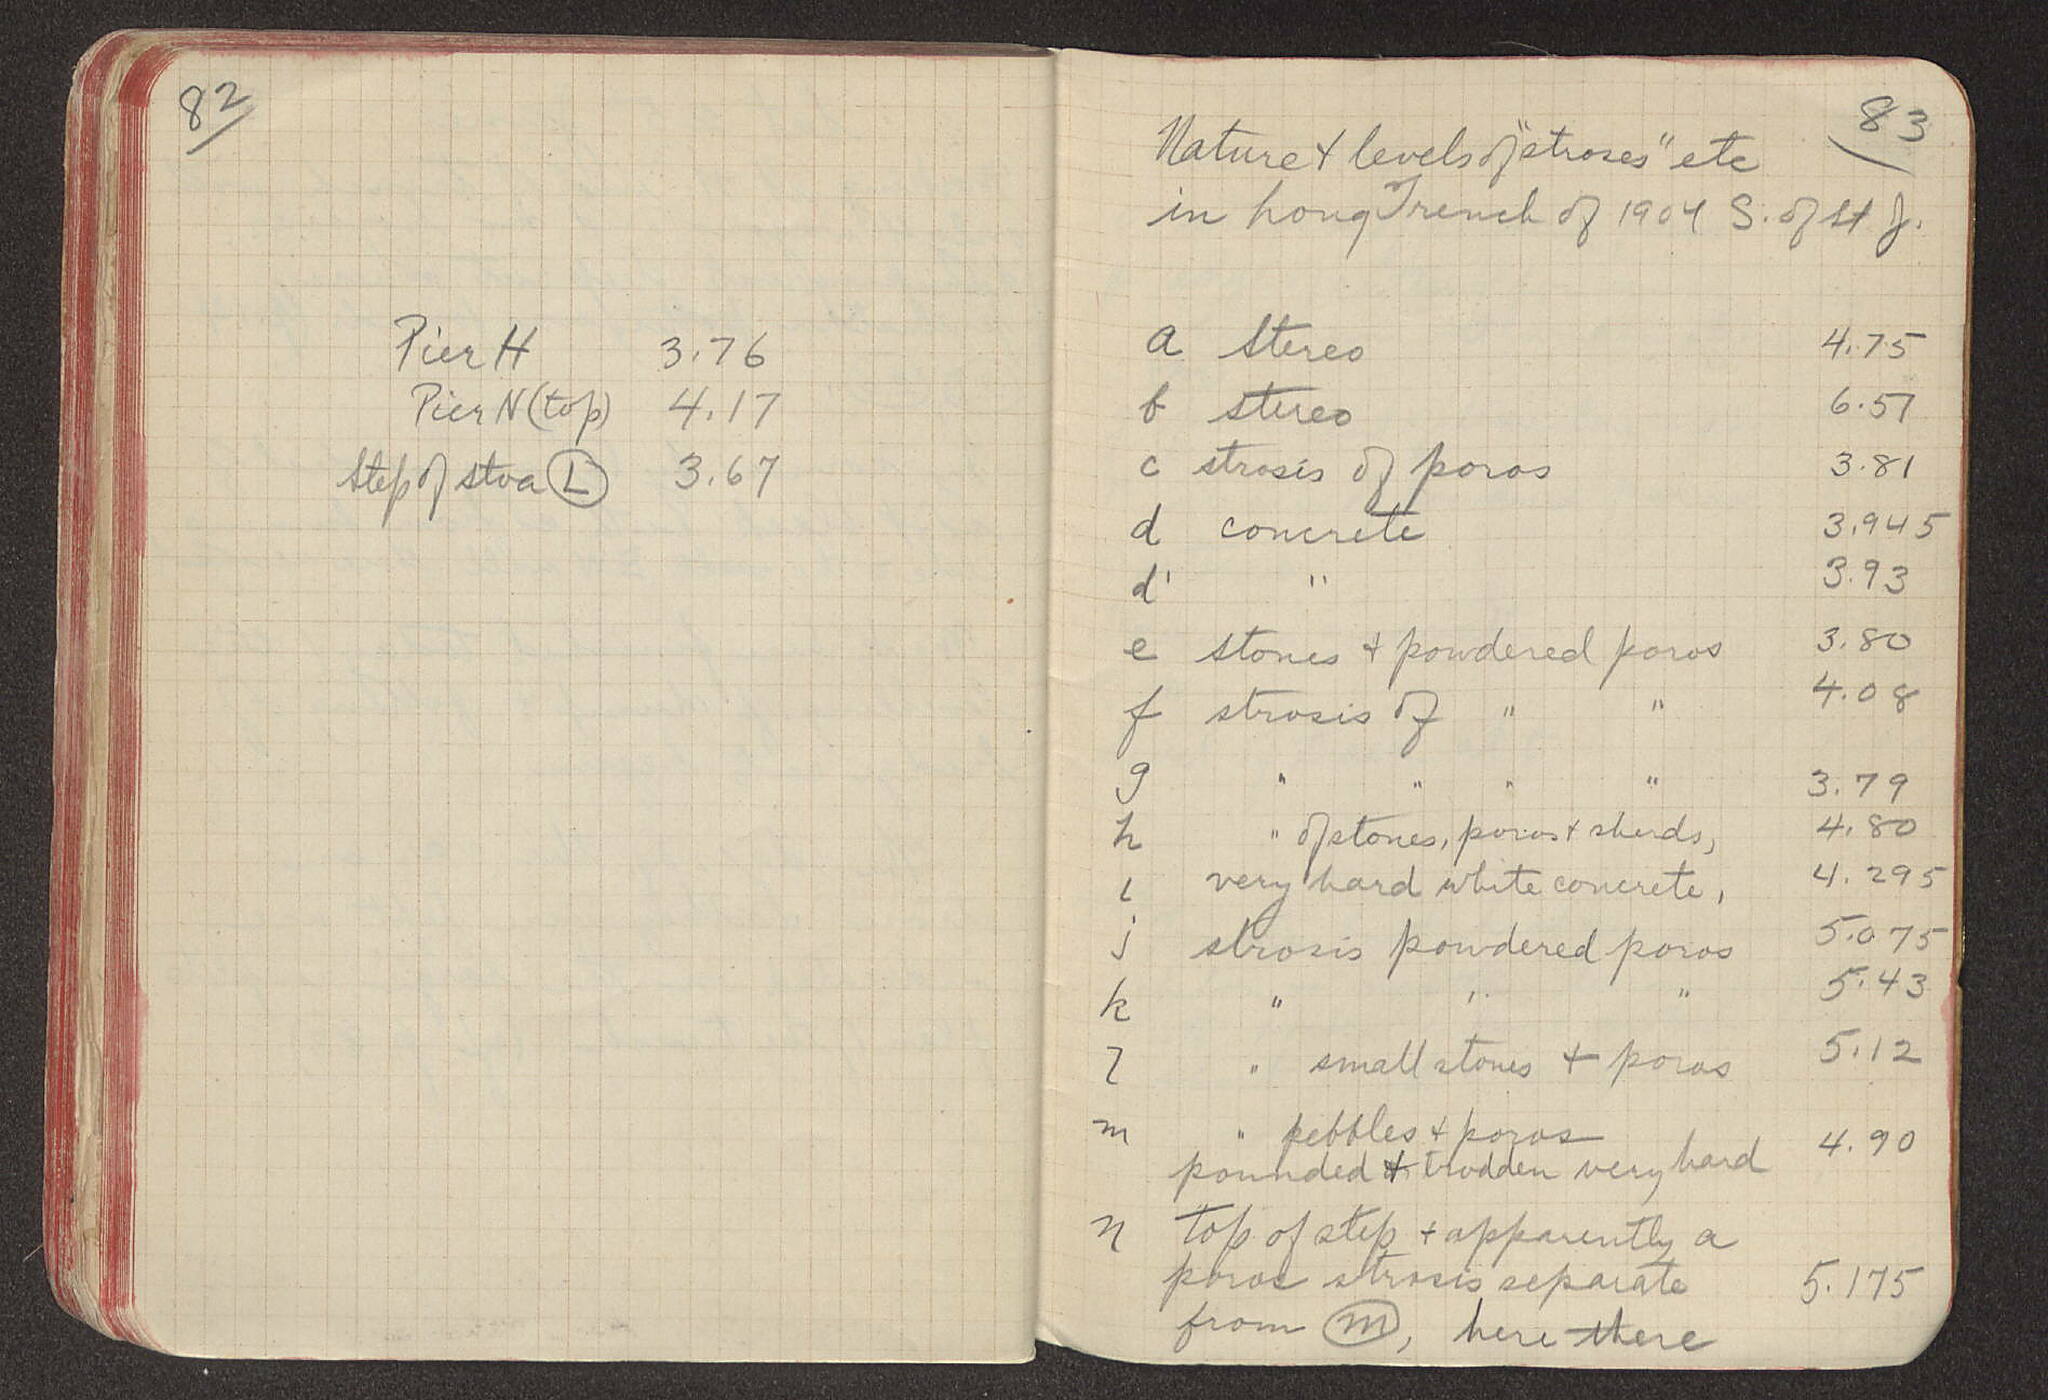 82
Pier H 3.76
Pier N (top) 4.17
Step of stoa L 3.67
83
Nature & levels of "stroses" etc
in Long Trench of 1904 S. of St J.
a Stereo 4.75
b stereo 6.57
c strosis of poros 3.81
d concrete 3.945
d' " 3.93
e stones & powdered poros 3.80
f strosis of " " 4.08
g " " " " 3.79
h " of stones, poros & sherds, 4.80
i very hard white concrete, 4.295
j strosis powdered poros 5.075
k " " " 5.43
l " small stones & poros 5.12
m " pebbles & poros 4.90
pounded & trodden very hard
n top of step & apparently a
poros strosis separate 5.175
from m, here there